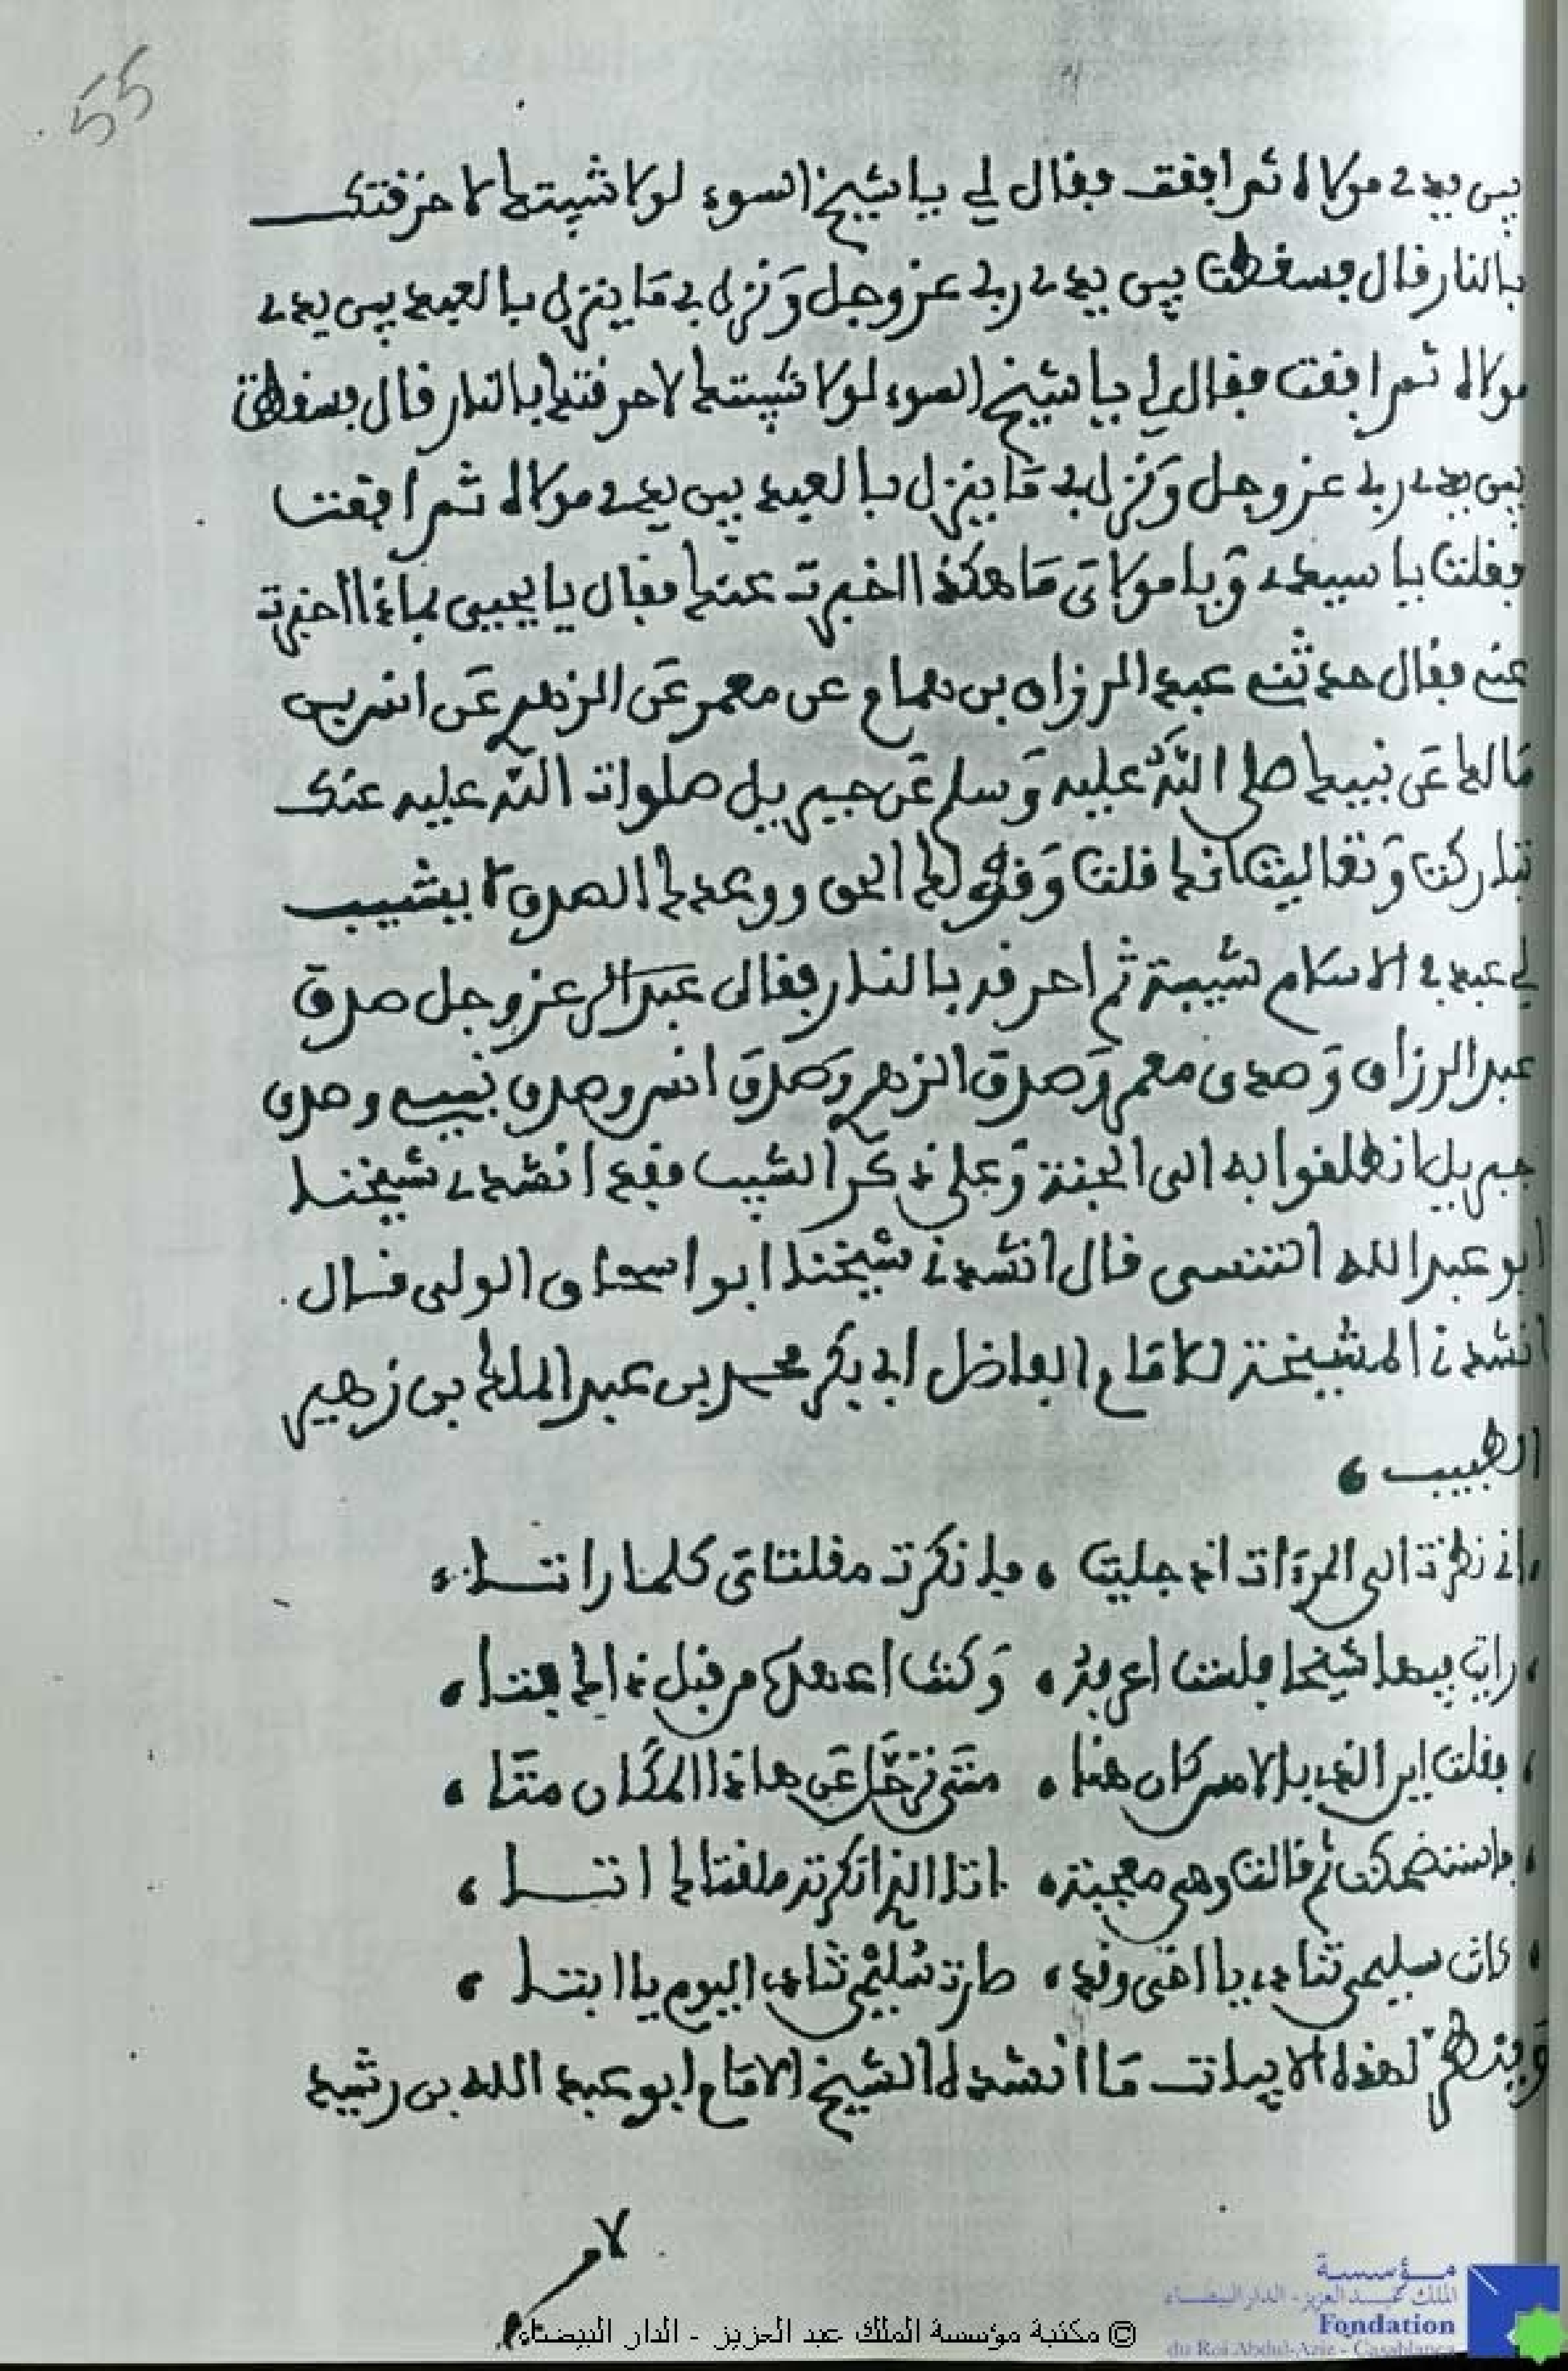 55
بين يدي مولاه ثم افقت فقال لي يا شيخ السوء لولا شيبتك لاحرقتك
بالنار قال فسقطت بين يدي ربي عز وجل ونزل بي ما ينزل بالعبد بين يدي
مولاه ثم افقت فقال لي يا شيخ السوء لولا شيبتك لاحرقتك بالنار قال فسقطت
بين يدي ربي عز وجل ونزل بي ما ينزل بالعبد بين يدي مولاه ثم افقت
فقلت يا سيدي ويا مولاي ما هكذا اخبرت عنك فقال يا يحيى بماذا اخبرت
عني فقال حدثني عبد الرزاق بن همام عن معمر عن الزهري عن انس بن
مالك عن نبيك صلى الله عليه وسلم عن جبريل صلوات الله عليه عنك
تباركت وتعاليت انك قلت وقولك الحق ووعدك الصدق لا يشيب
لي عبد في الاسلام شيبة ثم احرقه بالنار فقال عز وجل صدق
عبد الرزاق وصدق معمر وصدق الزهري وصدق انس وصدق نبيي وصدق
جبريل انطلقوا به الى الجنة وعلى ذكر الشيب فقد انشدني شيخنا
ابو عبد الله التنسي قال انشدني شيخنا ابو اسحاق الولي قال
انشدني المشيخة للامام الفاضل ابي بكر محمد بن عبد الملك بن زهير
الطبيب
اني نظرت الى المرءات اذ جليت ، فانكرت مقلتاي كلما راتا
رايت فيها شيخا فلست اعرفه ، وكنت اعهد من قبل ذاك فتا
فقلت اين الذي بالامس كان هنا ، متى ترحل عن هاذا المكان متا
فاستضحكت ثم قالت وهي معجبة ، اتا الذي انكرته مقلتاك اتا
كانت سليمى تنادي يا اخي وقد ، صارت سليمى تنادي اليوم يا ابتا
وينظر لهذه الابيات ما انشده الشيخ الامام ابو عبد الله بن رشيد
© مكتبة مؤسسة الملك عبد العزيز - الدار البيضاء
مؤسسة
الملك عبد العزيز - الدار البيضاء
Fondation
du Roi Abdul-Aziz - Casablanca